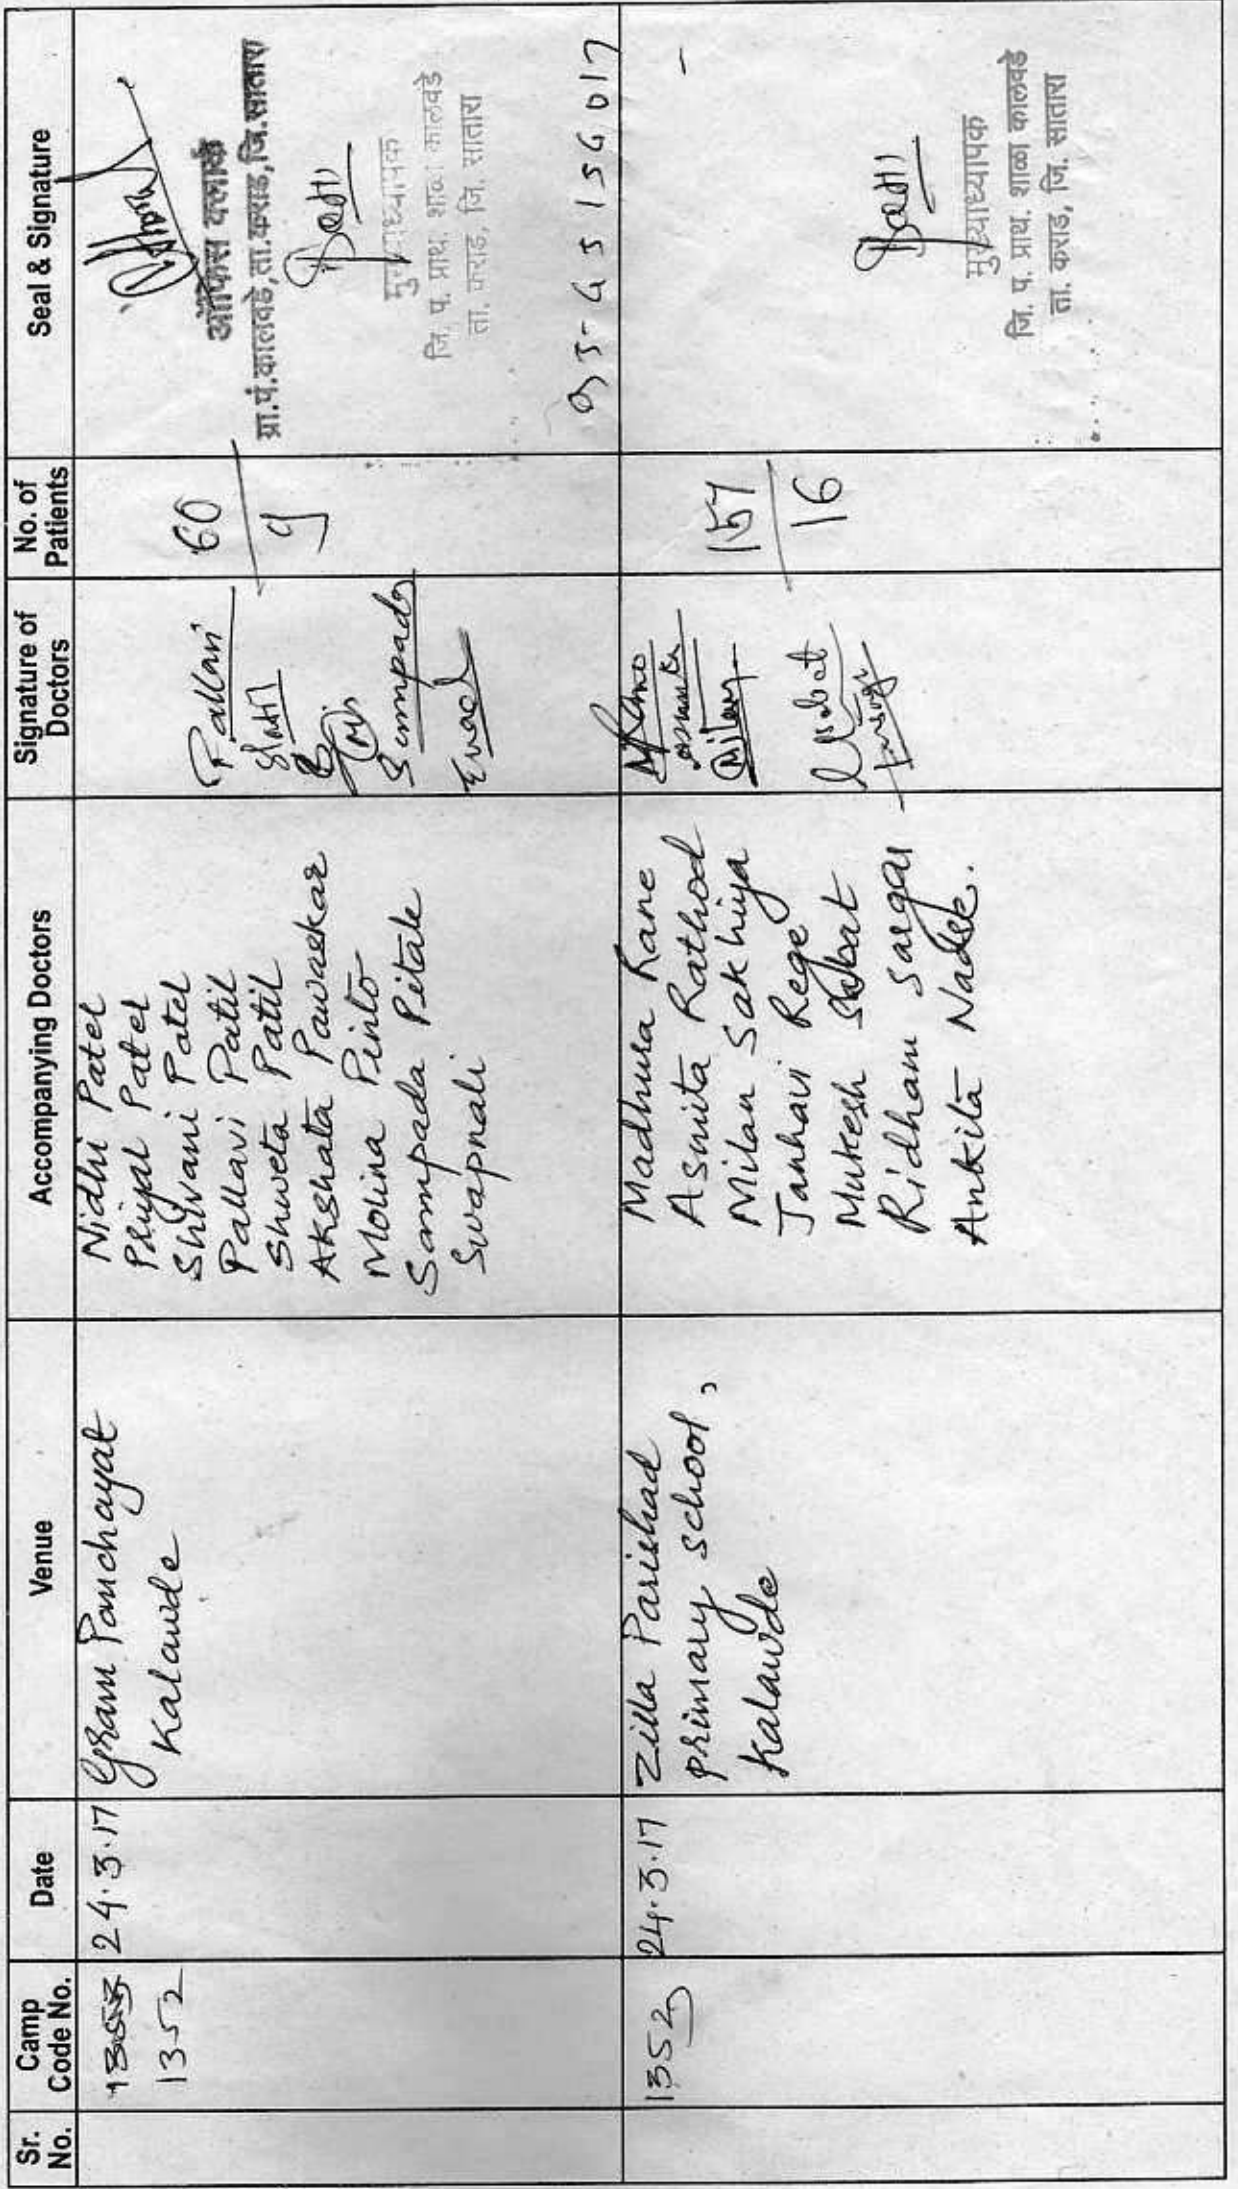 Sr. No.
Camp Code No.
Date
Venue
Accompanying Doctors
Signature of Doctors
No. of Patients
Seal & Signature
1352
24.3.17
Gram Panchayat
Kalawde
Nidhi Patel
Priyal Patel
Shivani Patel
Pallavi Patil
Shweta Patil
Akshata Pawaskar
Molina Pinto
Sampada Pitale
Swapnali
Pallavi
Sampada
60
9
ग्रा.पं.कालवडे,ता.कराड,जि.सातारा
मुख्याध्यापक
जि. प. प्राथ. शाळा कालवडे
ता. कराड, जि. सातारा
1352
24.3.17
Zilla Parishad
primary school,
Kalawde
Madhura Rane
Asmita Rathod
Milan Sakhiya
Janhavi Rege
Mukesh Sabat
Ridham Sargar
Ankita
Milan
157
16
मुख्याध्यापक
जि. प. प्राथ. शाळा कालवडे
ता. कराड, जि. सातारा